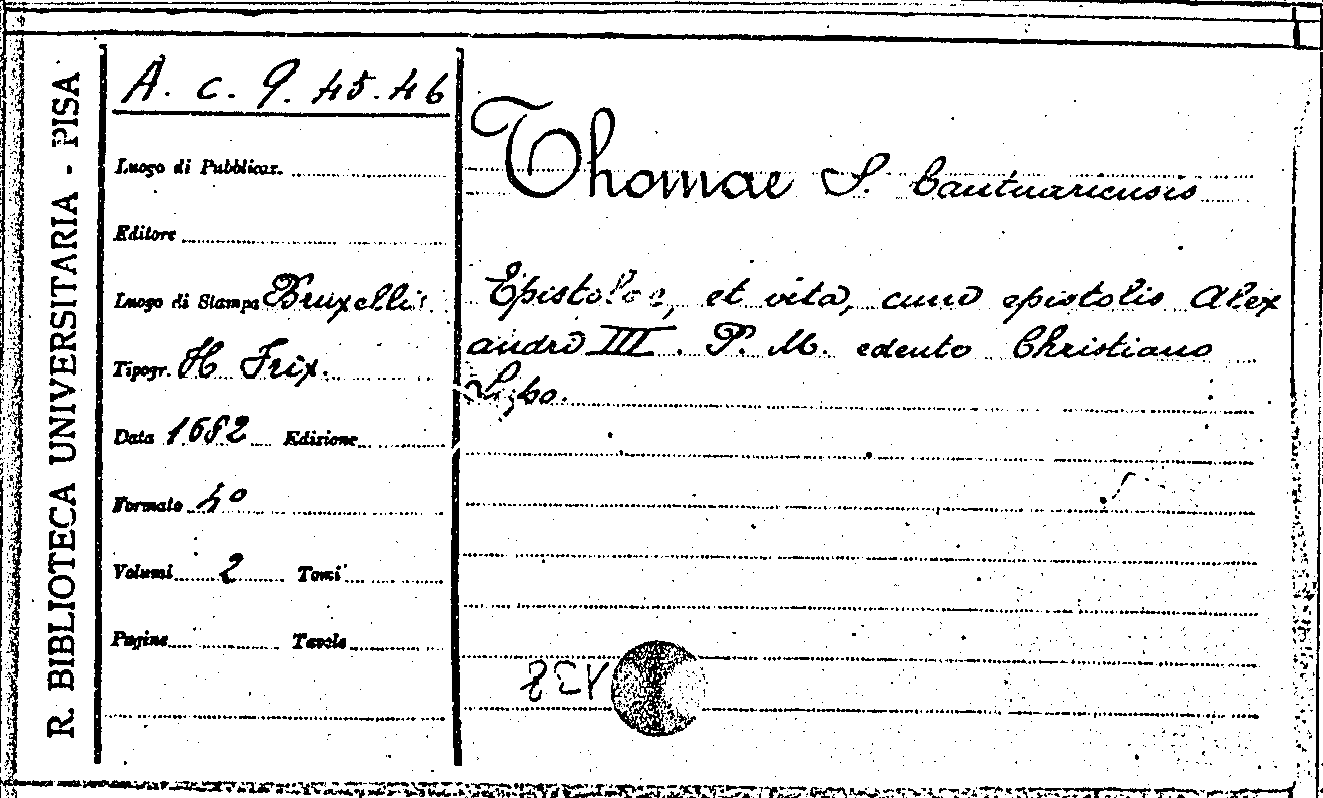 R. BIBLIOTECA UNIVERSITARIA - PISA
A. c. 9. 45.46
Luogo di Pubblicaz.
Editore
Luogo di Stampa Bruxellis
Tipogr. H Frix.
Data 1682 Edizione
Formato 4°
Volumi 2 Tomi
Pagine Tavole
Thomae S. Cantuariensis
Epistolae, et vita, cum epistolis Alex
andri III. P. M. edento Christiano
Lupo.